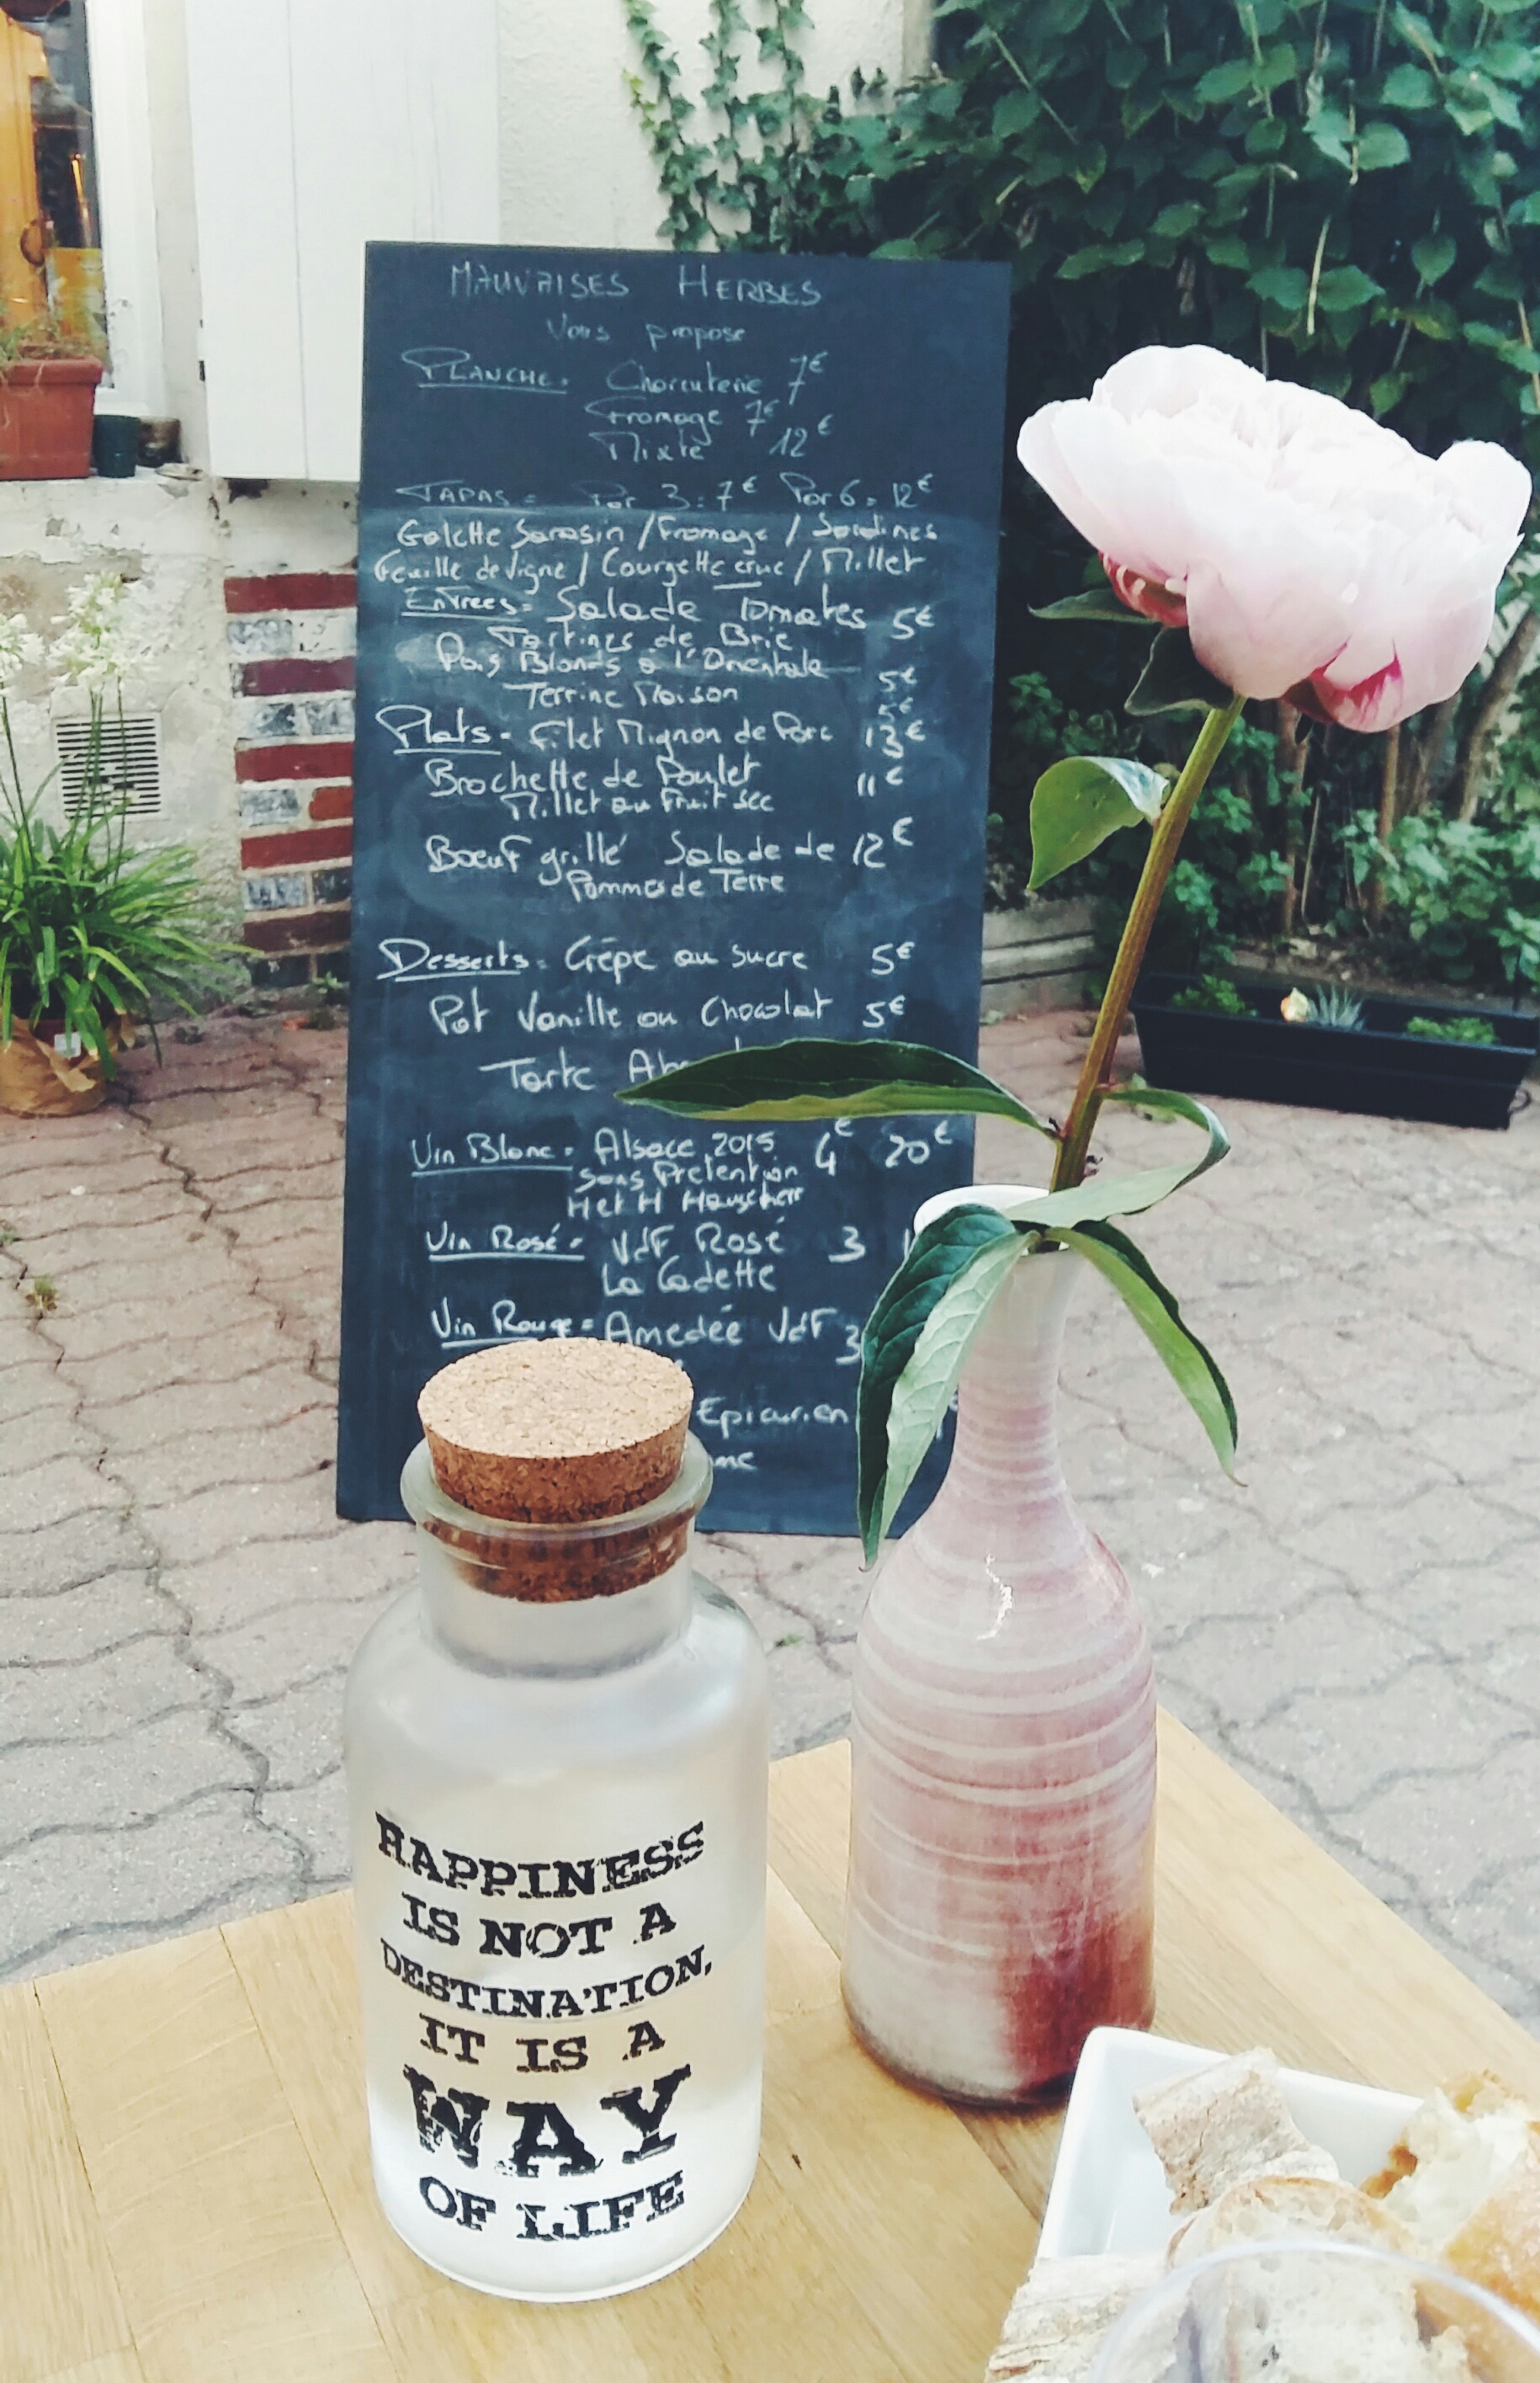 MAUVAISES HERBES
Vous propose
PLANCHE = Charcuterie 7€
Fromage 7€
Mixte 12€
TAPAS = Par 3 = 7€ Par 6 = 12€
Galette Sarasin / Fromage / Sardines
Feuille de vigne / Courgette crue / Millet
Entrées = Salade tomates 5€
Tartines de Brie
Pois Blonds à l'Orientale 5€
Terrine Maison 5€
Plats - Filet Mignon de Porc 13€
Brochette de Poulet 11€
Millet au Fruit sec
Bœuf grillé Salade de 12€
Pommes de Terre
Desserts = Crêpe au sucre 5€
Pot Vanille ou Chocolat 5€
Tarte
Vin Blanc = Alsace 2015 4€ 20€
Sans Pretention
H et H Hauscherr
Vin Rosé = VdF Rosé 3
La Cadette
Vin Rouge = Amedée VdF 3
Epicurien
HAPPINESS
IS NOT A
DESTINATION,
IT IS A
WAY
OF LIFE